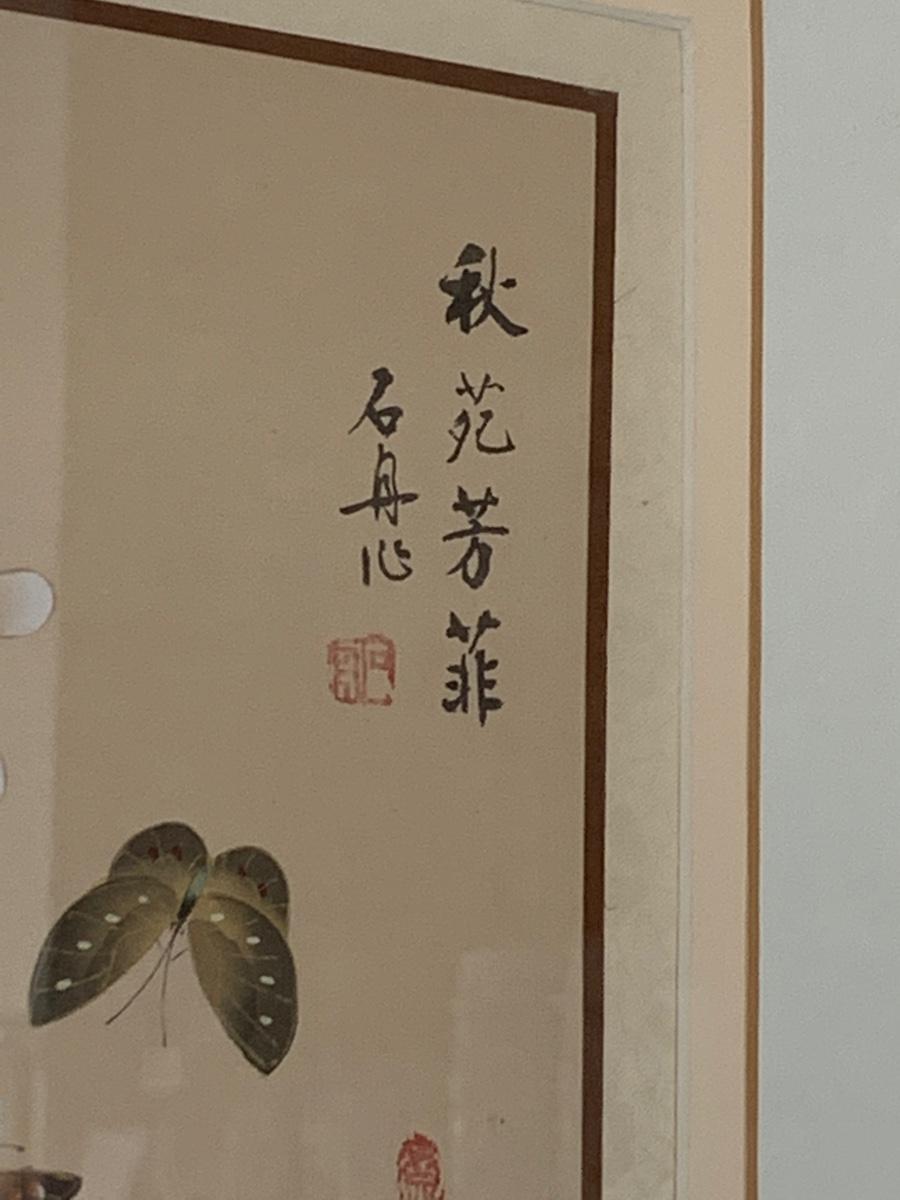 秋苑芳菲
石舟作